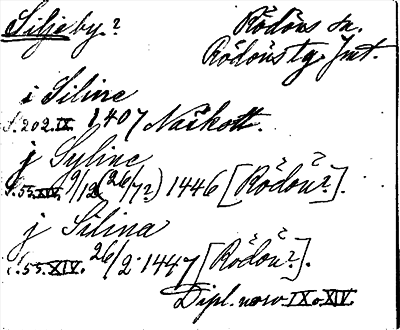 Siljeby?
Rödöns sn.
Rödöns tg. Jmt.
i Siline
S. 202. IX. 1407 Näskott.
j Syline
S. 55. XIV. 9/12 (26/7?) 1446 [Rödön?].
j Silina
S. 55. XIV. 26/2 1447 [Rödön?].
Dipl. XIV.